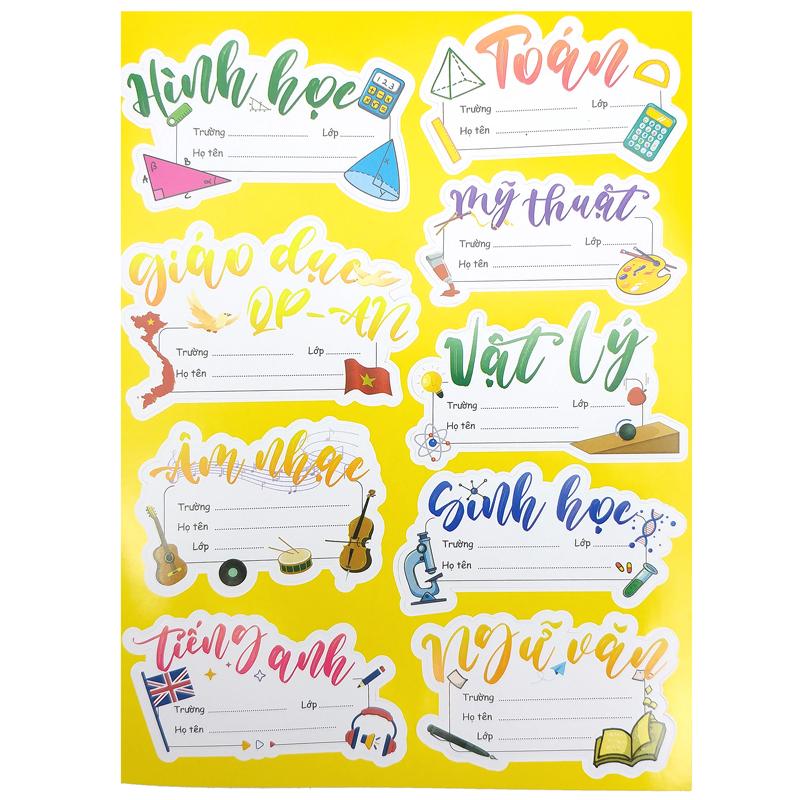 Hình học
1 2 3
Trường Lớp
Họ tên
A B C
β α x
Toán
Trường Lớp
Họ tên
mỹ thuật
Trường Lớp
Họ tên
giáo dục
QP-AN
Trường Lớp
Họ tên
Vật lý
Trường Lớp
Họ tên
Âm nhạc
Trường
Họ tên
Lớp
Sinh học
Trường Lớp
Họ tên
tiếng anh
Trường Lớp
Họ tên
Ngữ văn
Trường
Họ tên
Lớp